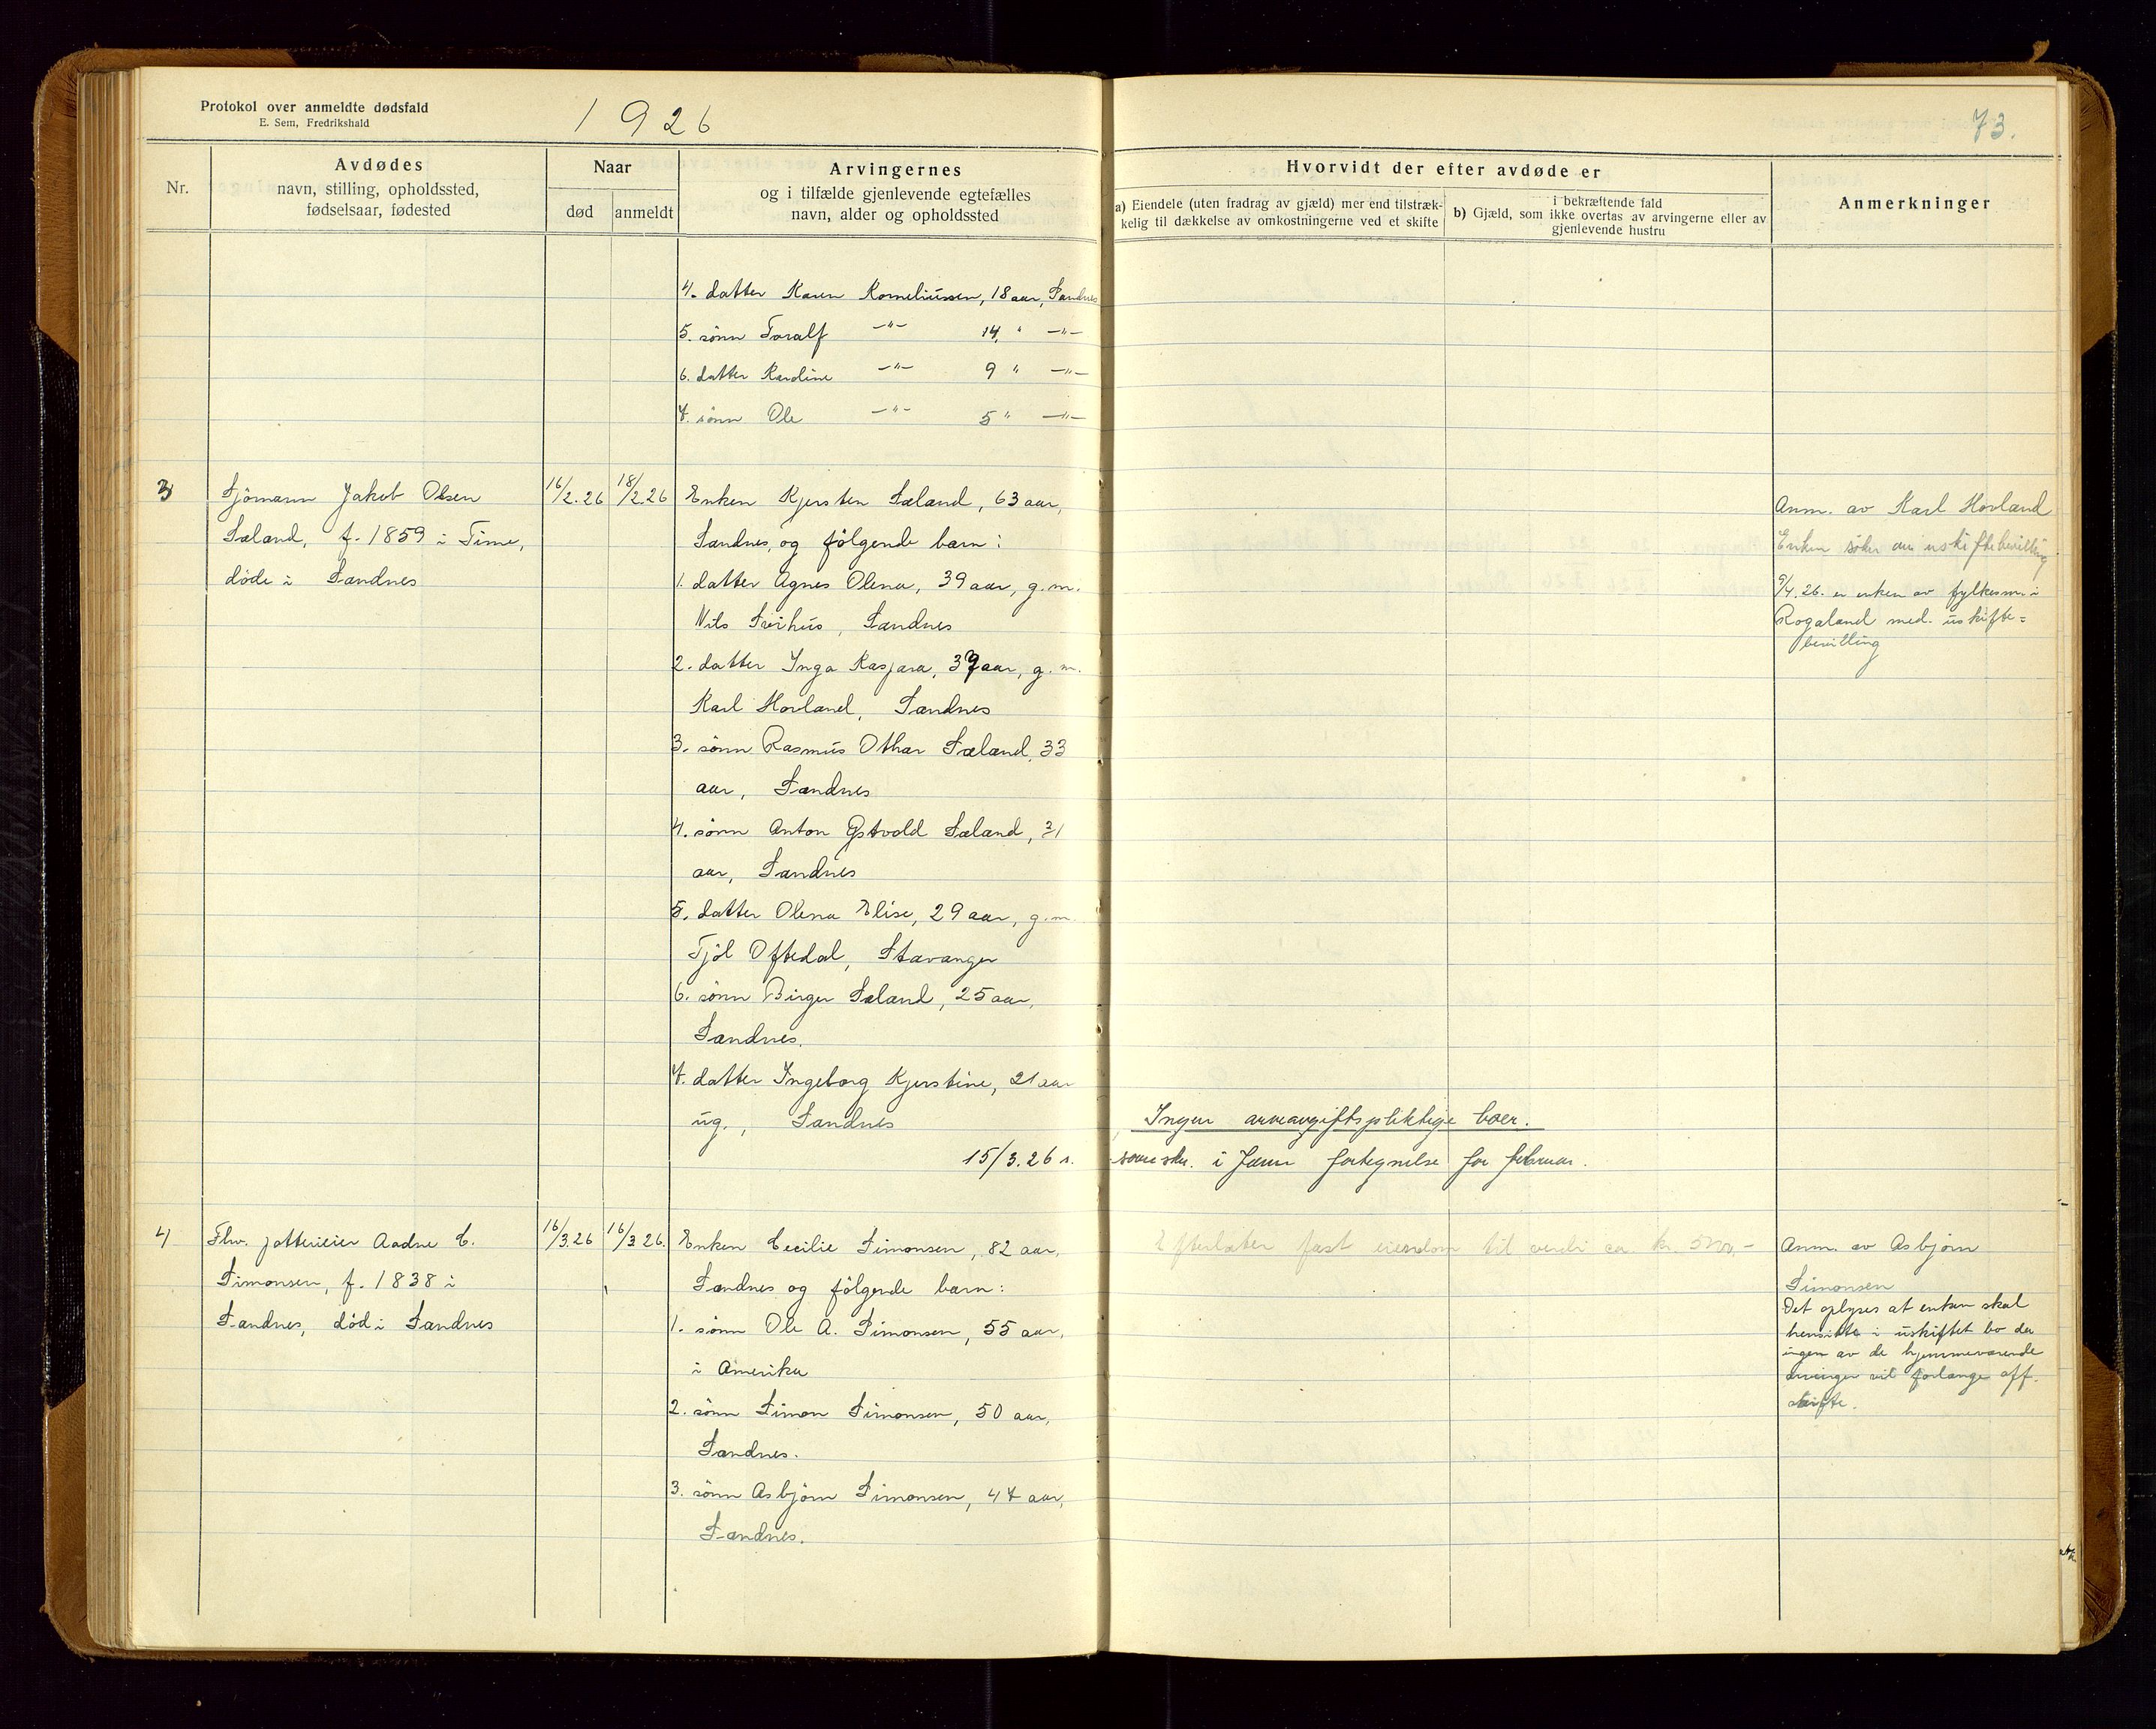 Protokol over anmeldte dødsfald
E. Sem, Fredrikshald
1926
73.
Nr.
Avdødes
navn, stilling, opholdssted,
fødselsaar, fødested
Naar
død
anmeldt
Arvingernes
og i tilfælde gjenlevende egtefælles
navn, alder og opholdssted
Hvorvidt der efter avdøde er
a) Eiendele (uten fradrag av gjæld) mer end tilstræk-
kelig til dækkelse av omkostningerne ved et skifte
i bekræftende fald
b) Gjæld, som ikke overtas av arvingerne eller av
gjenlevende hustru
Anmerkninger
4. datter Karen Korneliussen, 18 aar, Sandnes
5. sönn Toralf -"- 14, " -"-
6. datter Karoline -"- 9 " -"-
7. sönn Ole -"- 5 " -"-
3
Sjömann Jakob Olsen
Sæland, f. 1859 i Time,
döde i Sandnes
16/2.26
18/2.26
Enken Kjersten Sæland, 63 aar,
Sandnes, og fölgende barn:
1. datter Agnes Olena, 39 aar, g.m.
Nils , Sandnes
2. datter Inga Kasjara, 37 aar, g.m.
Karl Hovland, Sandnes
3. sönn Rasmus Othar Sæland, 33
aar, Sandnes
4. sönn Anton Sæland, 31
aar, Sandnes
5. datter Olena Elise, 29 aar, g.m.
Tjöl Oftedal, Stavanger
6. sönn Birger Sæland, 25 aar,
Sandnes.
7. datter Ingeborg Kjerstine, 21 aar
ug., Sandnes
Anm. av Karl Hovland
Enken söker om uskiftebevilling
9/4.26. er enken av fylkesm. i
Rogaland med. uskifte=
bevilling
Ingen arveavgiftspliktige boer.
15/3.26 s. i Janu fortegnelse for februar.
4
Fhv. potterieier Aadne C.
Simonsen, f. 1838 i
Sandnes, död i Sandnes
16/3.26
16/3.26.
Enken Cecilie Simonsen, 82 aar,
Sandnes og fölgende barn:
1. sönn Ole A. Simonsen, 55 aar,
i Amerika
2. sönn Simon Simonsen, 50 aar,
Sandnes.
3. sönn Asbjörn Simonsen, 47 aar,
Sandnes.
Efterlater fast eiendom til verdi ca kr. 5000,-
Anm. av Asbjörn
Simonsen
Det oplyses at enken skal
hensitte i uskiftet bo da
ingen av de hjemmeværende
arvinger vil forlange off.
skifte.